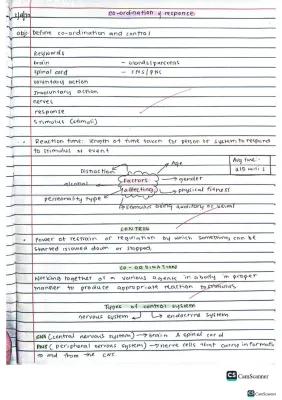 co-ordination & response
obj: Define co-ordination and control
Keywords
brain - glands/pancreas
spinal cord - CNS/PNS
voluntary action
Involuntary action
nerves
response
stimulus (stimuli)
Reaction time: length of time taken for person or system to respond
to stimulus or event
Distraction
Age
alcohol
Factors
affecting
gender
physical fitness
personality type
stimulus being auditory or visual
Avg time:-
CONTROL
Power of restrain or regulation by which something can be
started slowed down or stopped.
CO-ORDINATION
Working together of a various agents in a body in proper
manner to produce appropriate reaction to stimulus
Types of control system
nervous system
endocrine system
CNS (central nervous system) → brain & spinal cord
PNS (peripheral nervous system) → nerve cells that carry informati
to and from the CNS.
CS CamScanner
CamScanner